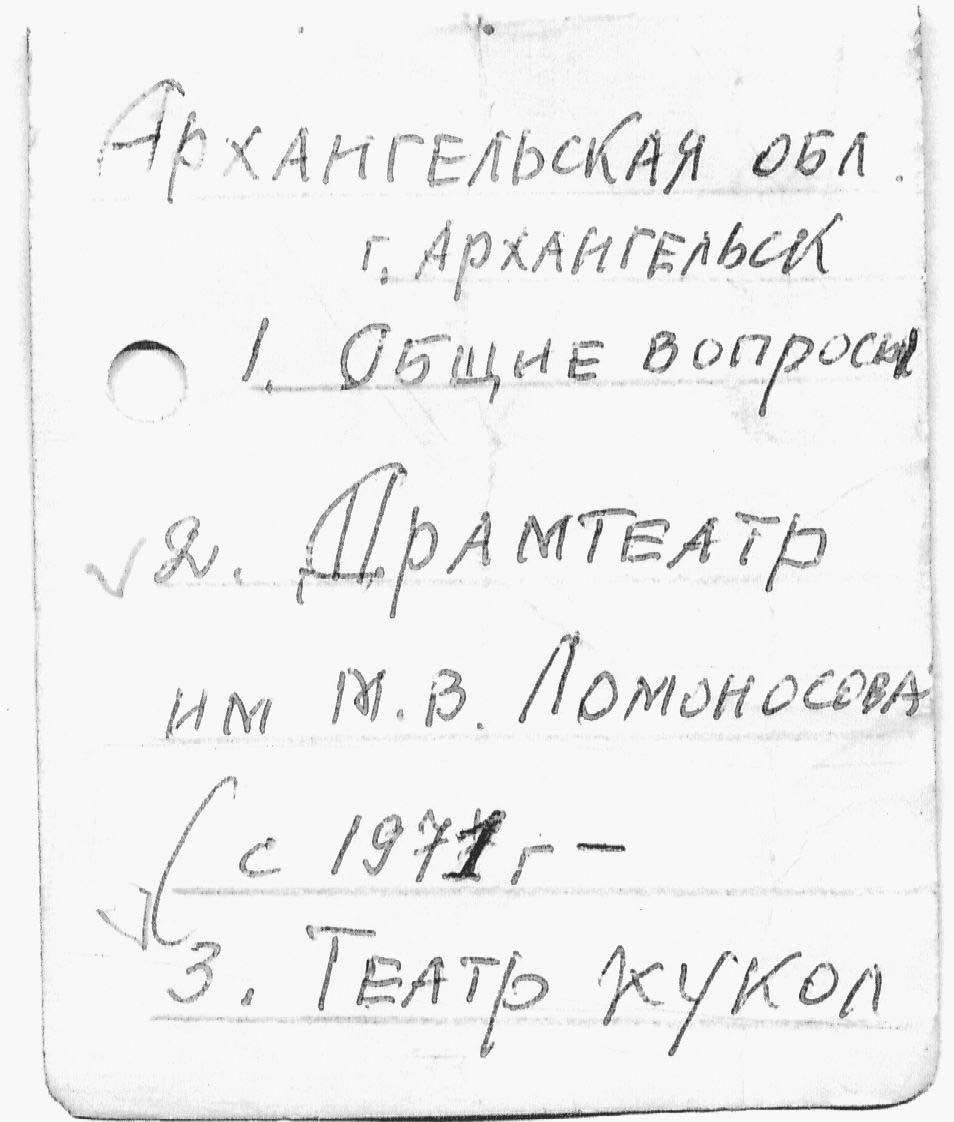 Архангельская обл.
г. Архангельск
1. Общие вопросы
2. Драмтеатр
им М.В. Ломоносова
с 1971 г –
3. Театр кукол